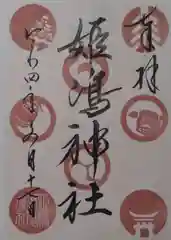 奉拝
姫嶋神社
令和四年五月十一日